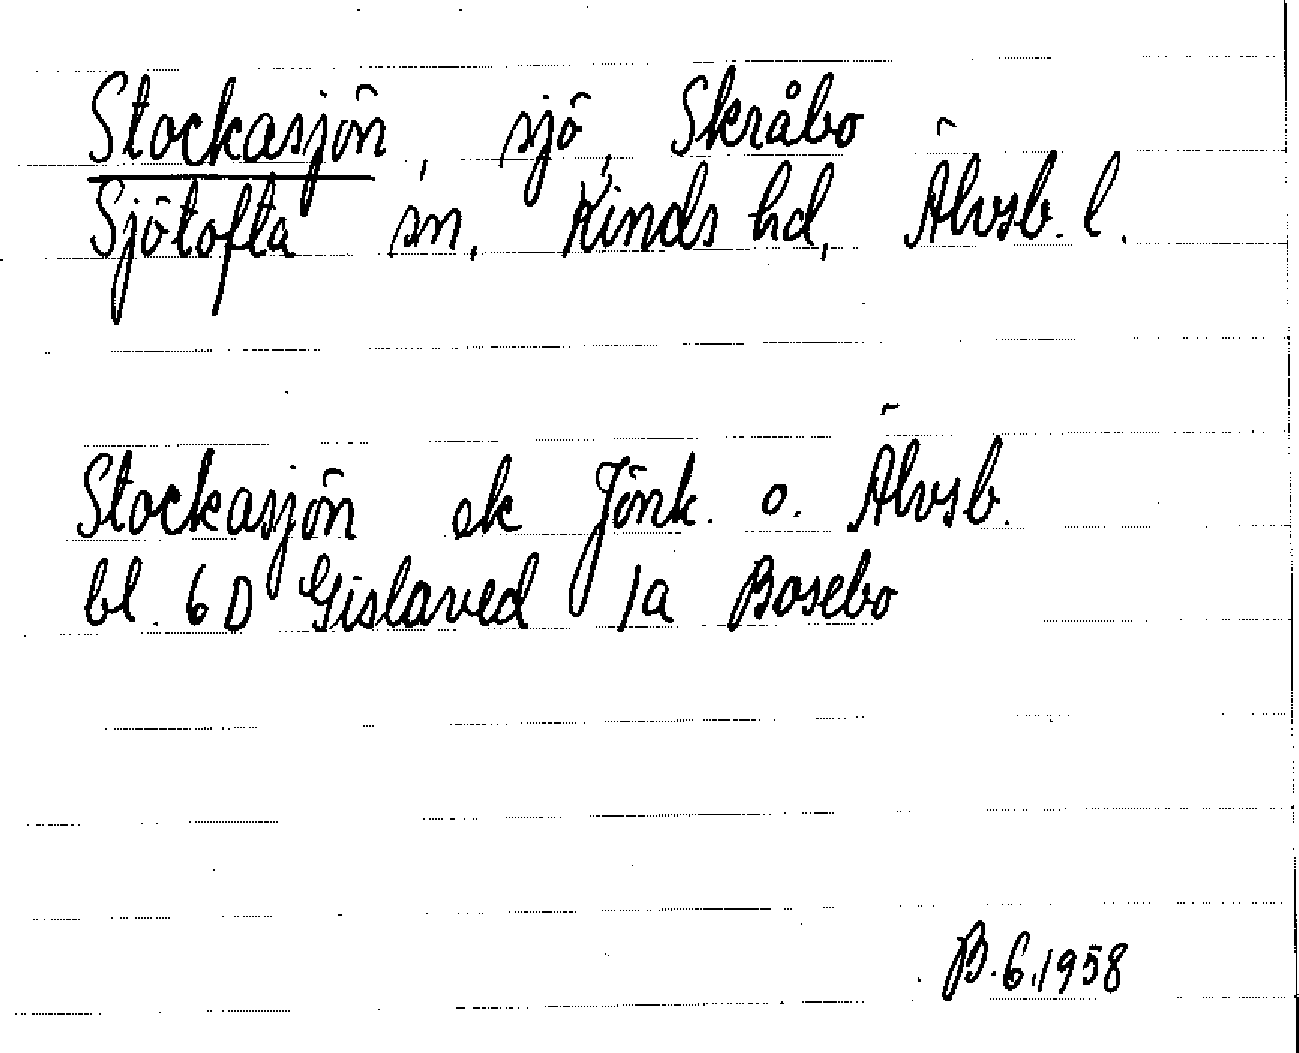 Stockasjön, sjö, Skråbo
Sjötofta sn, Kinds hd, Älvsb. l.
Stockasjön ek Jönk. o. Älvsb.
bl. 6 D Gislaved 1a Bosebo
B.G.1958